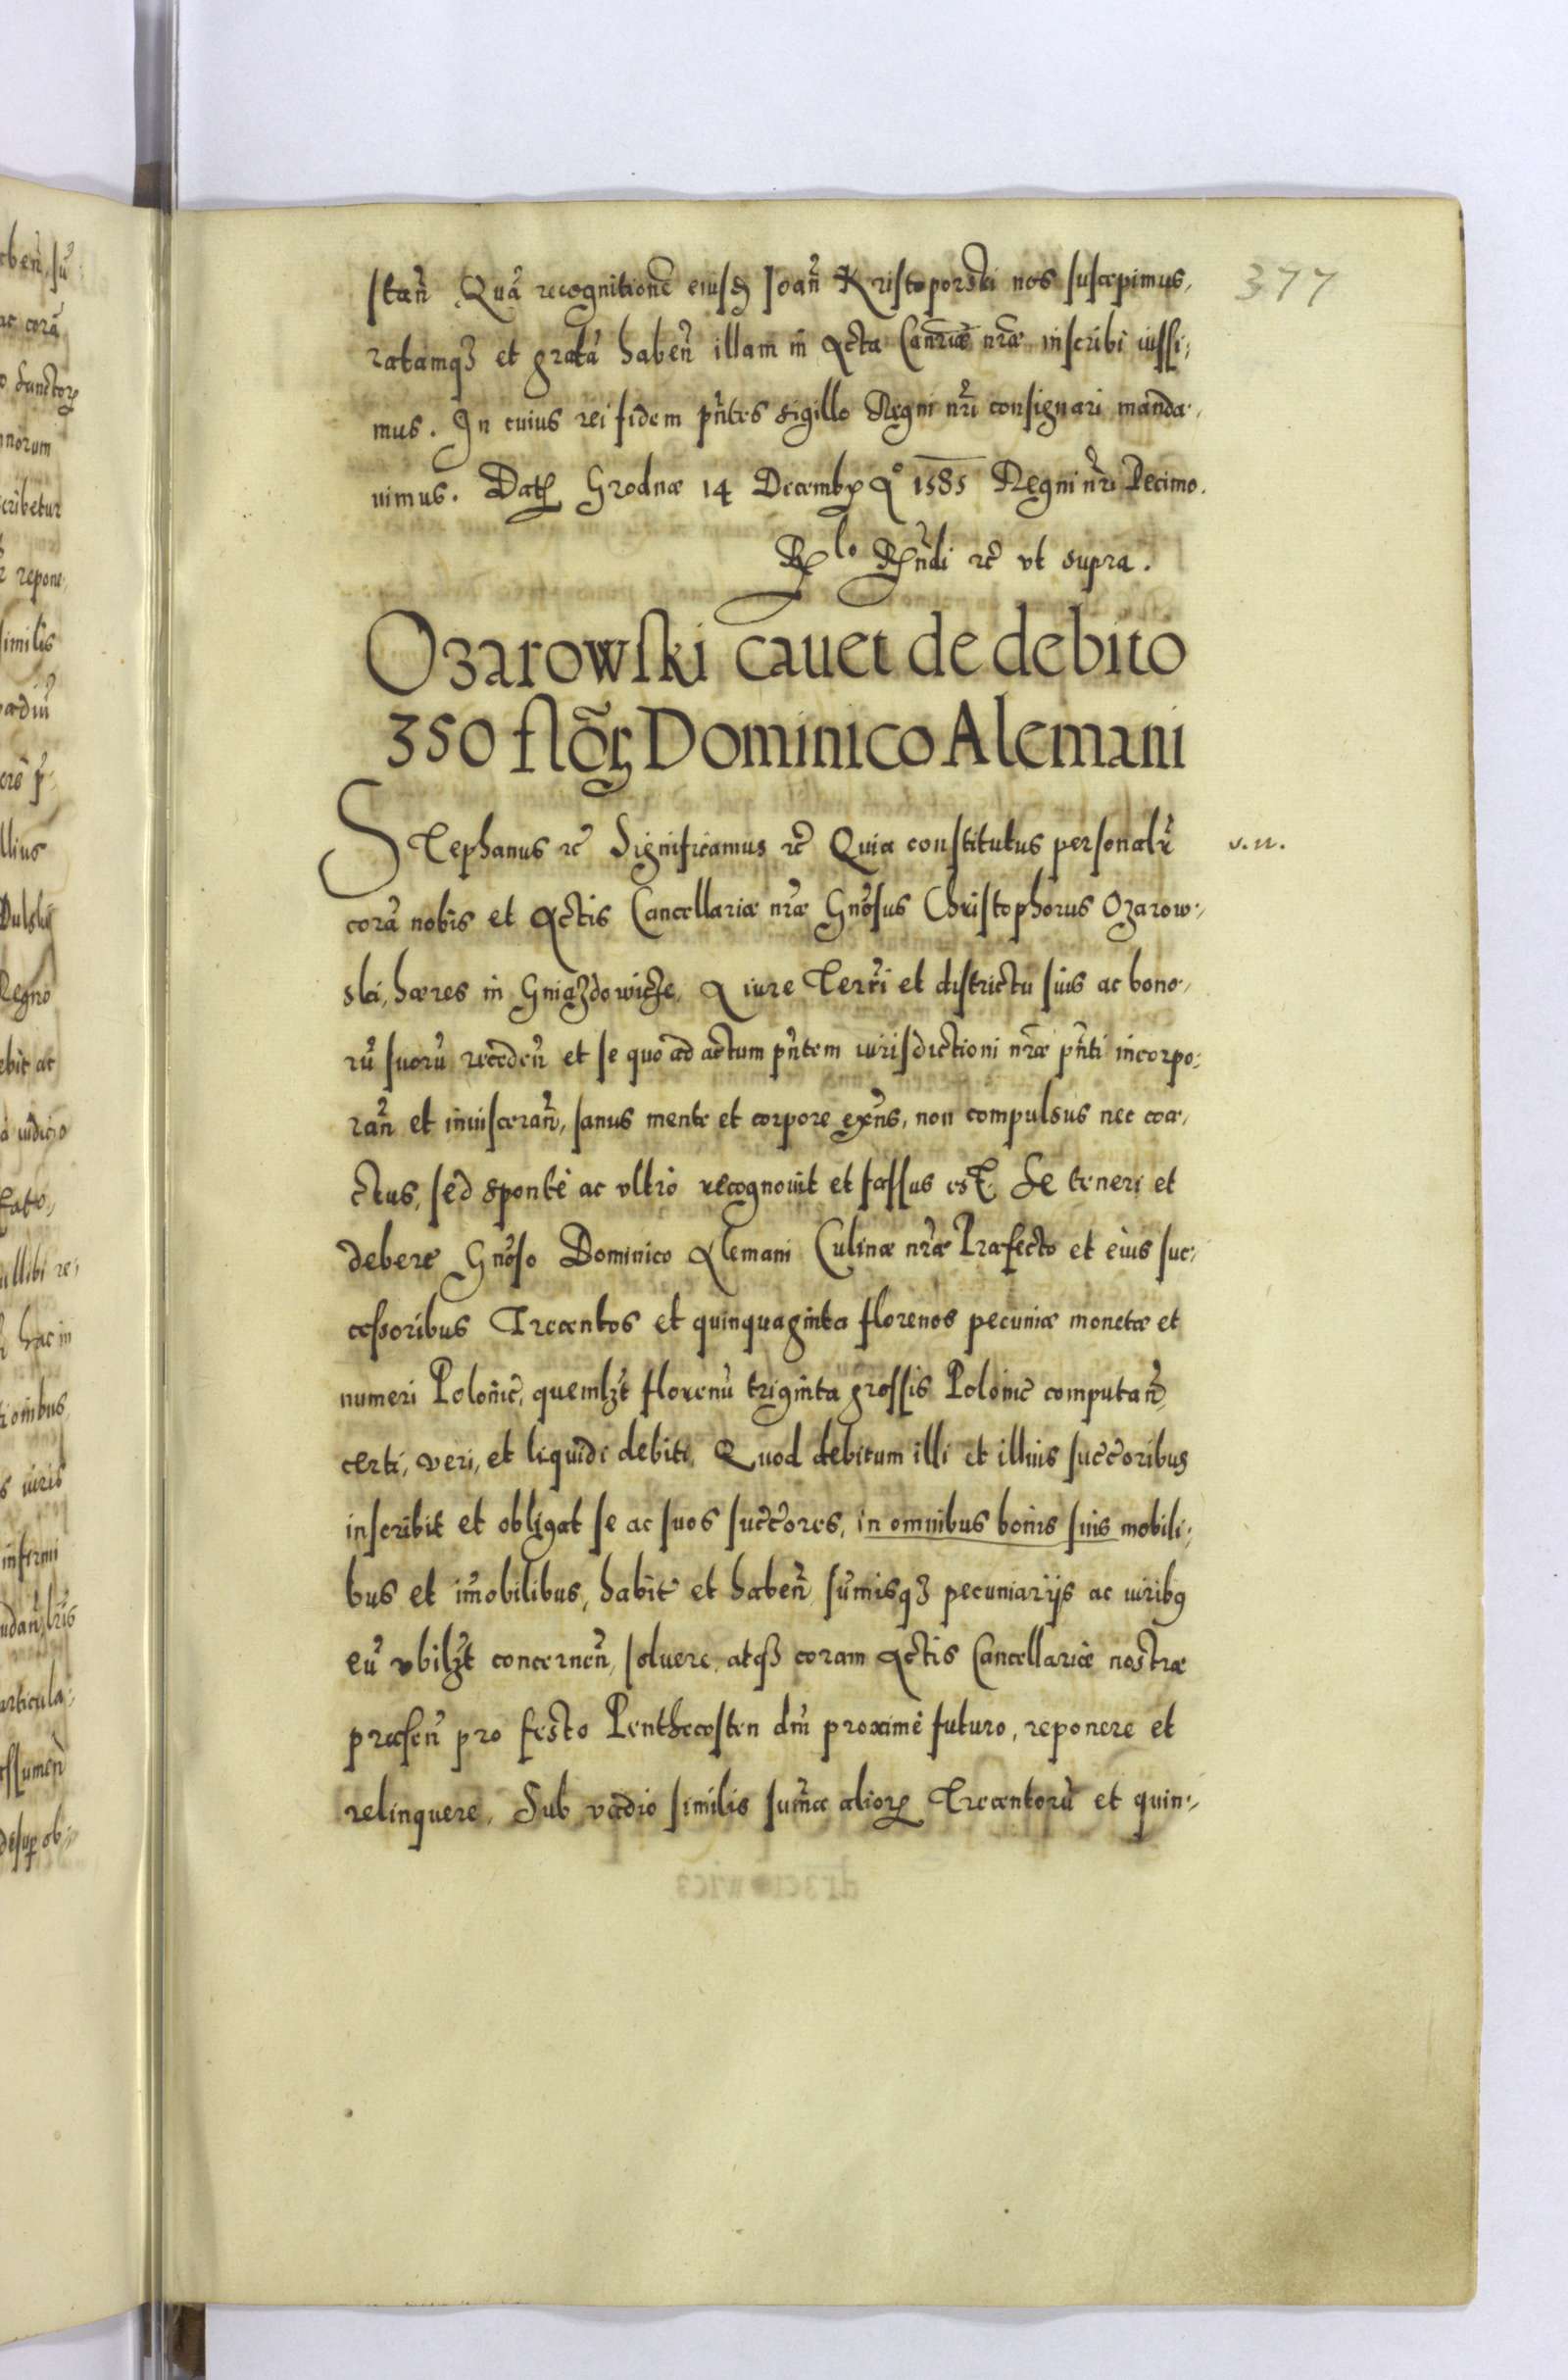 377
stan̄ Quā recognitionē eiusđ Joan̄ Kristoporski nos suscepimus,
ratamqȝ et gratā haben̄ illam in Acta Canriæ nræ inscribi iussi,
mus. In cuius rei fidem pn̄tes sigillo Regni nrī consignari manda,
uimus. Datꝭ Grodnæ 14 Decembꝭ Aº 1585 Regni nrī Decimo.
Rlo Rn̄di rc̄ vt supra.
Ozarowski cauet de debito
350 flōꝝ Dominico Alemani
Stephanus rc̄ Significamus rc̄ Quia constitutus personalr̄
v. n.
corā nobis et Actis Cancellariæ nræ Gnōsus Christophorus Ozarow,
ski, hæres in Gniazdowicze, A iure Terrī et districtu suis ac bono,
rū suorū receden̄ et se quo ad actum pn̄tem iurisdictioni nræ pn̄ti incorpo,
ran̄ et inuisceran̄, sanus mente et corpore exn̄s, non compulsus nec coa,
ctus, sed spontè ac vltrò recognouit et fassus est. Se teneri et
debere Gnōso Dominico Alemani Culinæ nræ Præfecto et eius suc,
cessoribus Trecentos et quinquaginta florenos pecuniæ monetæ et
numeri Polonic̄, quemlꝫt florenū triginta grossis Polonic̄ computan̄,
certi, veri, et liquidi debiti, Quod debitum illi et illius succ̄oribus
inscribit et obligat se ac suos succ̄ores, in omnibus bonis suis mobili,
bus et im̄obilibus, habit̄ et haben̄ sum̄isqȝ pecuniarijs ac iuribꝰ
eū vbilꝫt concernen̄, soluere, atqȝ coram Actis Cancellariæ nostræ
præsen̄ pro festo Penthecosten dn̄i proximè futuro, reponere et
relinquere, Sub vadio similis sum̄æ alioꝝ Trecentorū et quin,